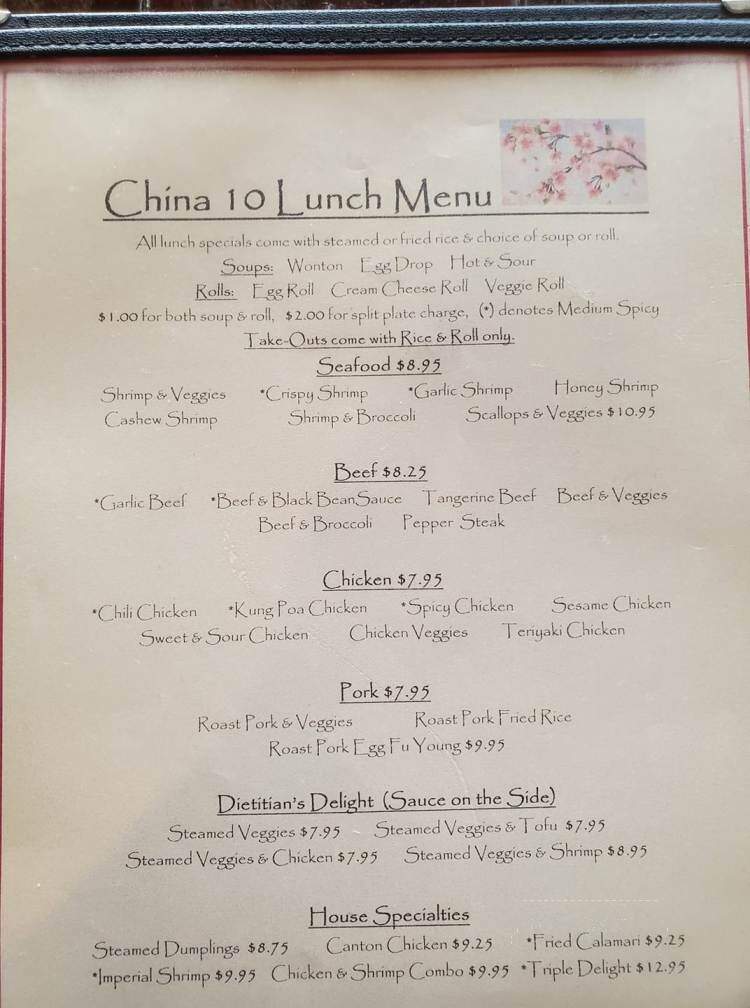 China 10 Lunch Menu
All lunch specials come with steamed or fried rice & choice of soup or roll.
Soups: Wonton Egg Drop Hot & Sour
Rolls: Egg Roll Cream Cheese Roll Veggie Roll
$1.00 for both soup & roll, $2.00 for split plate charge, (*) denotes Medium Spicy
Take-Outs come with Rice & Roll only.
Seafood $8.95
Shrimp & Veggies *Crispy Shrimp *Garlic Shrimp Honey Shrimp
Cashew Shrimp Shrimp & Broccoli Scallops & Veggies $10.95
Beef $8.25
*Garlic Beef *Beef & Black BeanSauce Tangerine Beef Beef & Veggies
Beef & Broccoli Pepper Steak
Chicken $7.95
*Chili Chicken *Kung Poa Chicken *Spicy Chicken Sesame Chicken
Sweet & Sour Chicken Chicken Veggies Teriyaki Chicken
Pork $7.95
Roast Pork & Veggies Roast Pork Fried Rice
Roast Pork Egg Fu Young $9.95
Dietitian's Delight (Sauce on the Side)
Steamed Veggies $7.95 Steamed Veggies & Tofu $7.95
Steamed Veggies & Chicken $7.95 Steamed Veggies & Shrimp $8.95
House Specialties
Steamed Dumplings $8.75 Canton Chicken $9.25 *Fried Calamari $9.25
*Imperial Shrimp $9.95 Chicken & Shrimp Combo $9.95 *Triple Delight $12.95